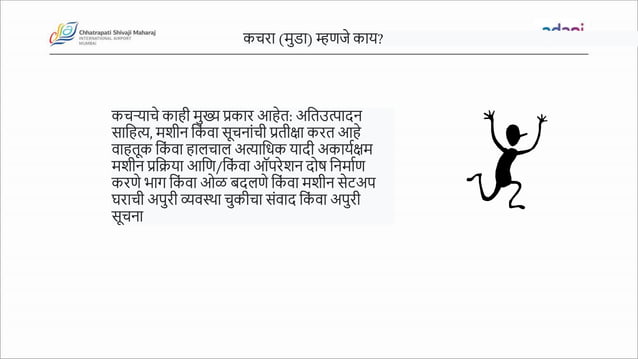 Chhatrapati Shivaji Maharaj
INTERNATIONAL AIRPORT
MUMBAI
adani
कचरा (मुडा) म्हणजे काय?
कचऱ्याचे काही मुख्य प्रकार आहेत: अतिउत्पादन
साहित्य, मशीन किंवा सूचनांची प्रतीक्षा करत आहे
वाहतूक किंवा हालचाल अत्याधिक यादी अकार्यक्षम
मशीन प्रक्रिया आणि/किंवा ऑपरेशन दोष निर्माण
करणे भाग किंवा ओळ बदलणे किंवा मशीन सेटअप
घराची अपुरी व्यवस्था चुकीचा संवाद किंवा अपुरी
सूचना